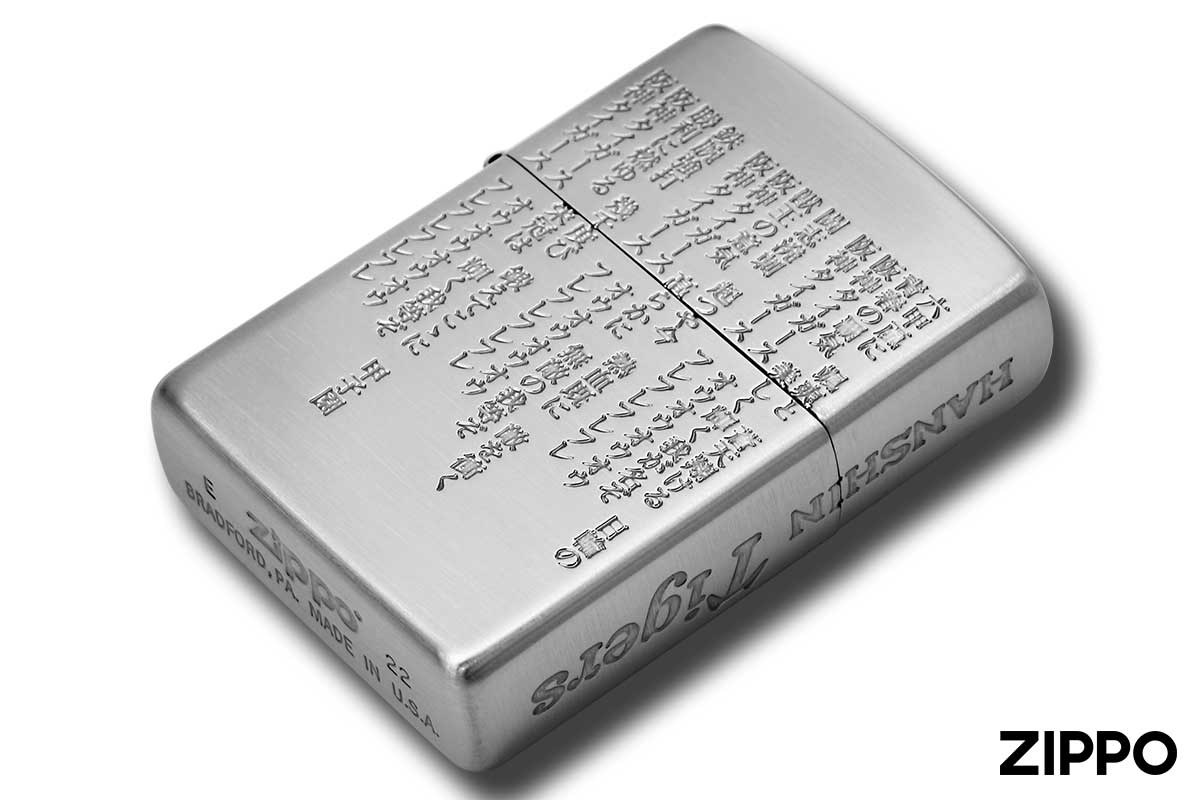 六甲颪に 颯爽と 蒼天翔ける 日輪の
青春の覇気 美しく 輝く我が名ぞ
阪神タイガース オゥオゥオゥオゥ
阪神タイガース フレフレフレフレ
闘志溌剌 起つや今 熱血既に 敵を衝く
獣王の意気 高らかに 無敵の我等ぞ
阪神タイガース オゥオゥオゥオゥ
阪神タイガース フレフレフレフレ
鉄腕強打 幾千度び 鍛えてここに 甲子園
勝利に燃ゆる 栄冠は 輝く我等ぞ
阪神タイガース オゥオゥオゥオゥ
阪神タイガース フレフレフレフレ
HANSHIN Tigers
E Zippo 22
BRADFORD, PA. MADE IN U.S.A.
ZIPPO